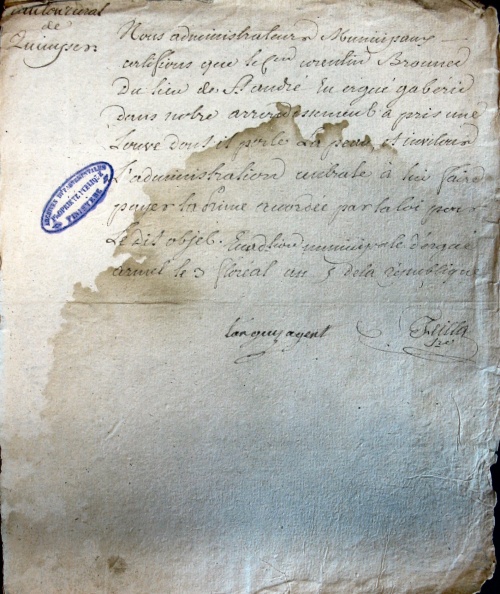 Canton rural
de
Quimper
Nous administrateurs Municipaux
certifions que le Cen corentin
Du lieu de St andré En ergué gaberic
dans notre arrondissement à pris une
Louve dont il porte La peau, et invitons
L'administration centrale à lui faire
payer la prime accordée par la loi pour
Le dit objet. municipale d'ergué
armel le 3 floreal an 5 de la republique
tanguy agent
ARCHIVES DÉPARTEMENTALES
PROPRIÉTÉ PUBLIQUE
FINISTÈRE